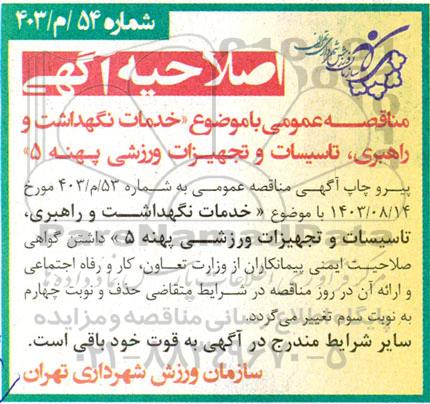 شماره ۵۴ /م/۴۰۳
سازمان ورزش شهرداری تهران
اصلاحیه آگهی
مناقصه عمومی با موضوع «خدمات نگهداشت و
راهبری، تاسیسات و تجهیزات ورزشی پهنه ۵»
پیرو چاپ آگهی مناقصه عمومی به شماره ۵۳/م/۴۰۳ مورخ
۱۴۰۳/۰۸/۱۴ با موضوع « خدمات نگهداشت و راهبری،
تاسیسات و تجهیزات ورزشی پهنه ۵ » داشتن گواهی
صلاحیت ایمنی پیمانکاران از وزارت تعاون، کار و رفاه اجتماعی
و ارائه آن در روز مناقصه در شرایط متقاضی حذف و نوبت چهارم
به نوبت سوم تغییر می‌گردد.
سایر شرایط مندرج در آگهی به قوت خود باقی است.
سازمان ورزش شهرداری تهران
ParsNamadData
پایگاه اطلاع رسانی مناقصه و مزایده
۰۲۱-۸۸۳۴۹۶۷۰-۵